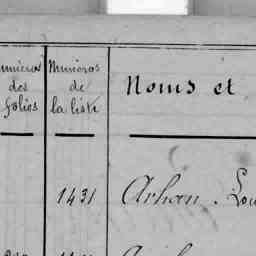 numéros Numéros
des de Noms et
folios la liste
1431 Arhan Lou